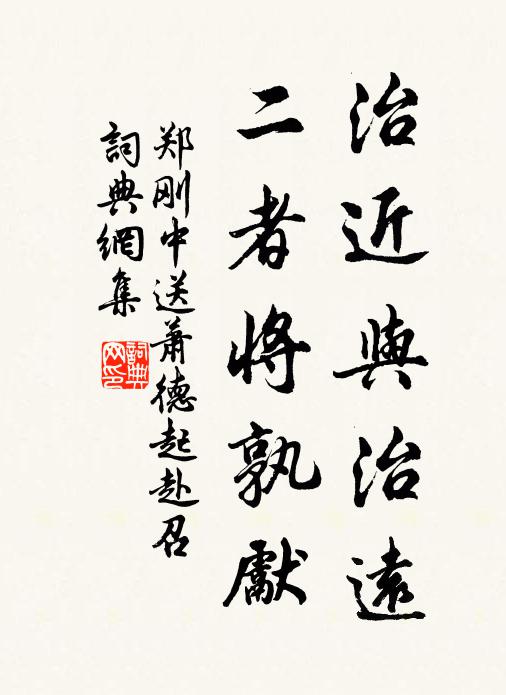 治近與治遠
二者將孰獻
郑刚中送萧德起赴召
詞典網集
詞典网印